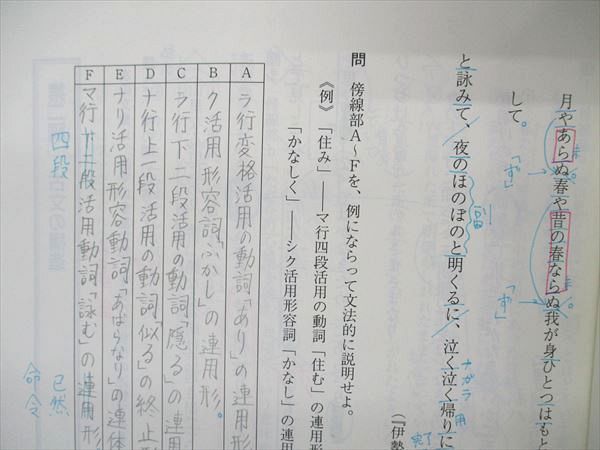 月やあらぬ春や昔の春ならぬ我が身ひとつはもと
未
「ず」
未
「ず」
して。
と詠みて、夜のほのぼのと明くるに、泣く泣く帰りに
ナガラ
用
完了
(『伊勢
問 傍線部A～Fを、例にならって文法的に説明せよ。
《例》「住み」――マ行四段活用の動詞「住む」の連用形
「かなしく」――シク活用形容詞「かなし」の連用
A ラ行変格活用の動詞「あり」の連用形
B ク活用形容詞「ふかし」の連用形。
C ラ行下二段活用の動詞「隠る」の連用
D ナ行上一段活用の動詞「似る」の終止形
E ナリ活用形容動詞「あばらなり」の連体
F マ行下二段活用動詞「詠む」の連用形
四段
已然
命令